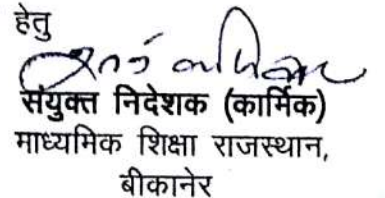 हेतु
संयुक्त निदेशक (कार्मिक)
माध्यमिक शिक्षा राजस्थान,
बीकानेर